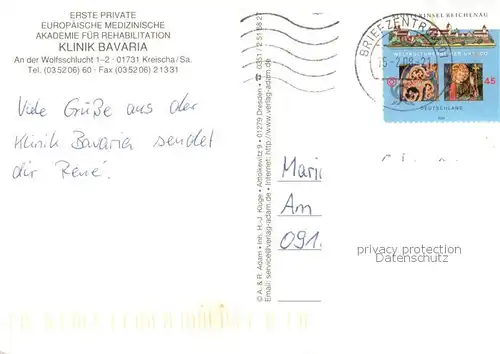 ERSTE PRIVATE
EUROPÄISCHE MEDIZINISCHE
AKADEMIE FÜR REHABILITATION
KLINIK BAVARIA
An der Wolfsschlucht 1–2 · 01731 Kreischa/Sa.
Tel. (035206) 60 · Fax (035206) 21331
Viele Grüße aus der
Klinik Bavaria sendet
dir René.
© A. & R. Adam • Inh. H.-J. Kluge • Altdolkewitz 9 • 01279 Dresden • 0351 / 2 51 58 21
Email: service@verlag-adam.de • Internet: http://www.verlag-adam.de
BRIEFZENTRUM
KLOSTERINSEL REICHENAU
WELTKULTURERBE DER UNESCO
45
DEUTSCHLAND
Am
091
privacy protection
Ansichtskartenversand.com